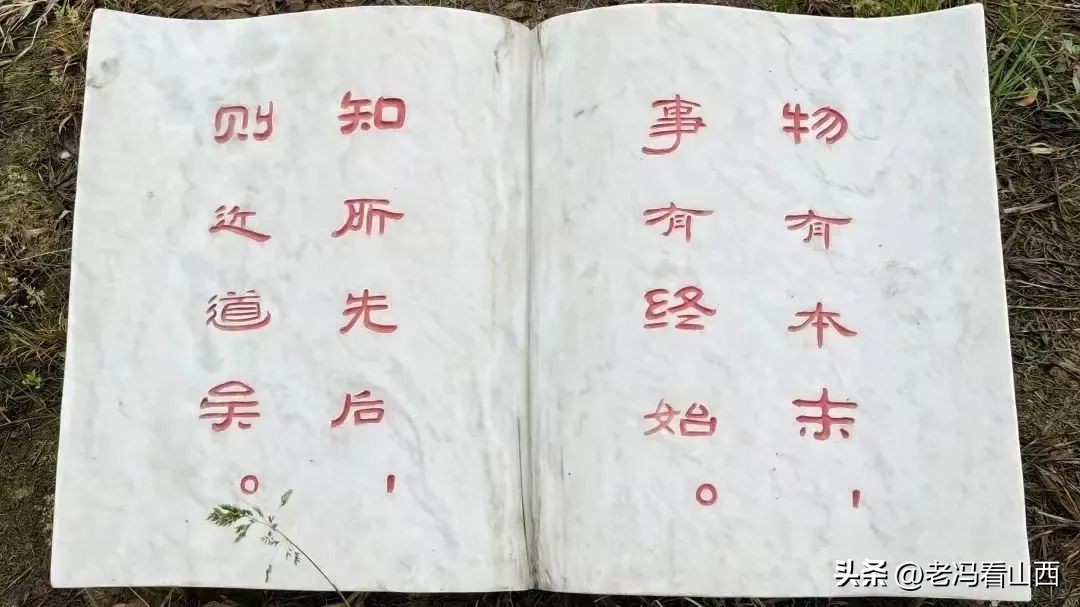 物有本末，
事有终始。
知所先后，
则近道矣。
头条 @老冯看山西